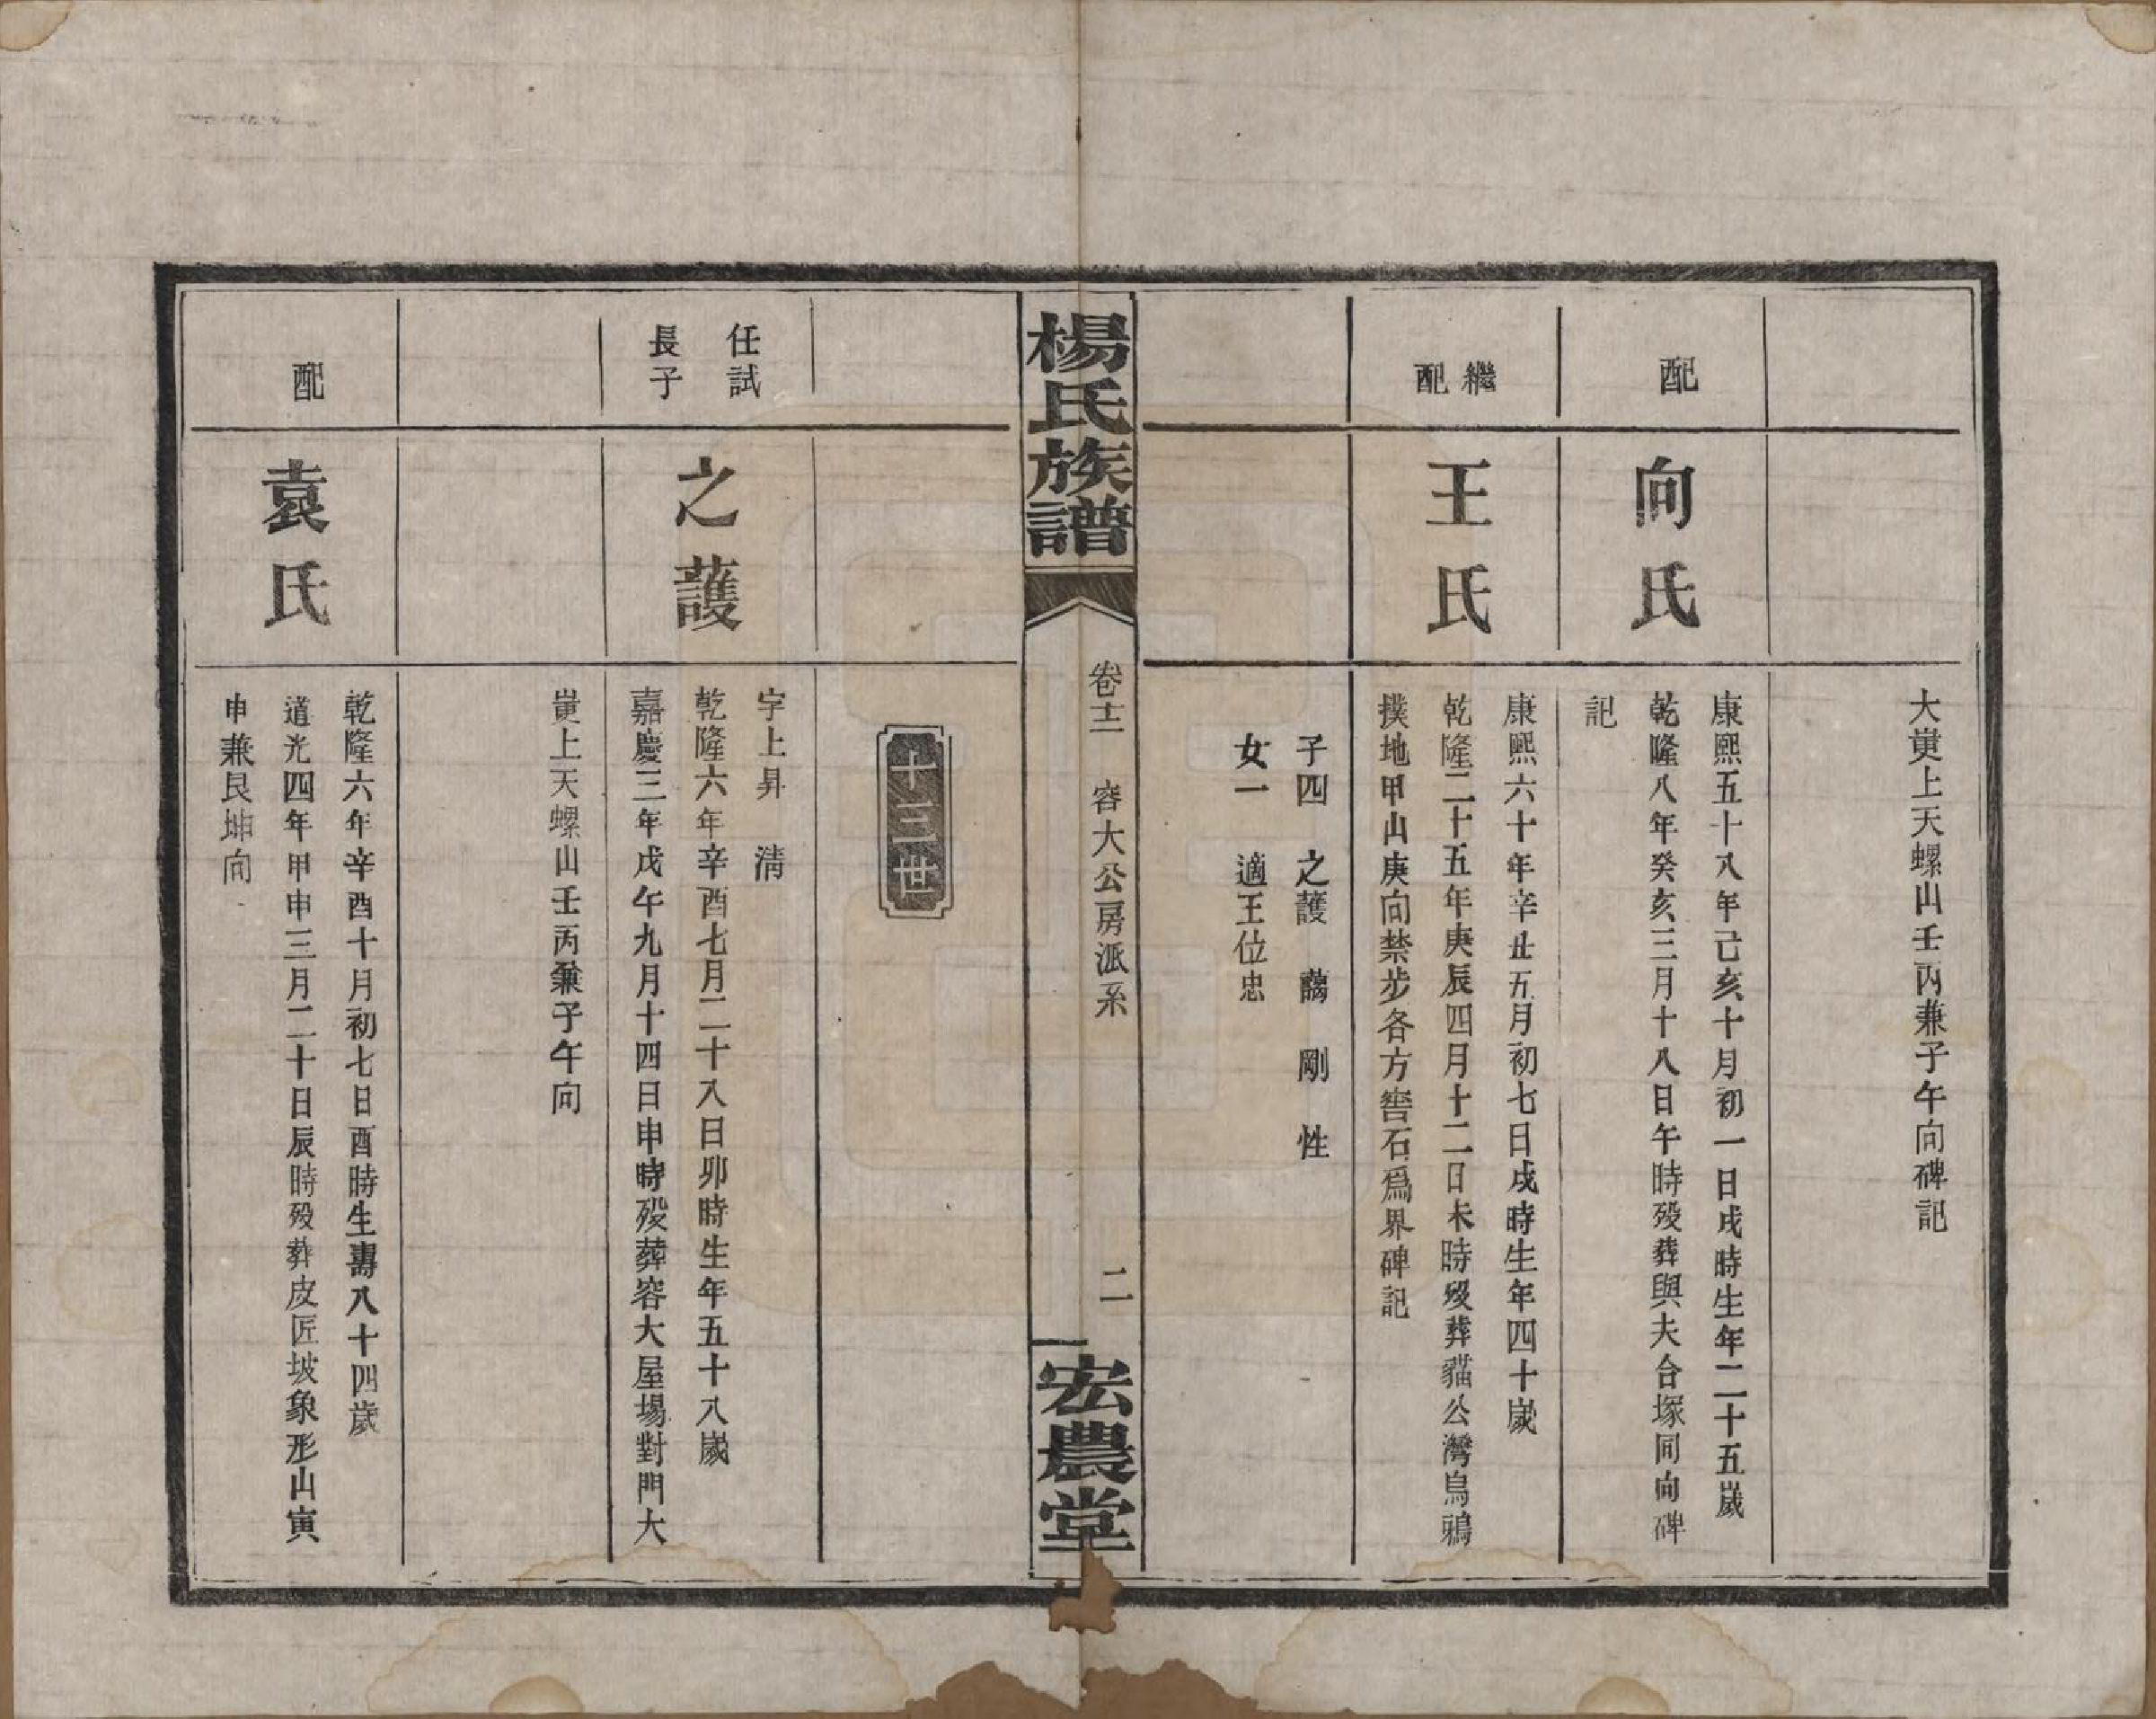 大嵬上天螺山壬丙兼子午向碑記
配
向氏
康熙五十八年己亥十月初一日戌時生年二十五歲
乾隆八年癸亥三月十八日午時歿葬與夫合塚同向碑
記
繼配
王氏
康熙六十年辛丑五月初七日戌時生年四十歲
乾隆二十五年庚辰四月十二日未時歿葬貓公灣烏鴉
撲地甲山庚向禁步各方窖石爲界碑記
子四 之護 藹 剛 性
女一 適王位忠
楊氏族譜
卷十二 容大公房派系
二
宏農堂
十三世
任試
長子
之護
字上昇 清
乾隆六年辛酉七月二十八日卯時生年五十八歲
嘉慶三年戊午九月十四日申時歿葬容大屋場對門大
嵬上天螺山壬丙兼子午向
配
袁氏
乾隆六年辛酉十月初七日酉時生壽八十四歲
道光四年甲申三月二十日辰時歿葬皮匠坡象形山寅
申兼艮坤向